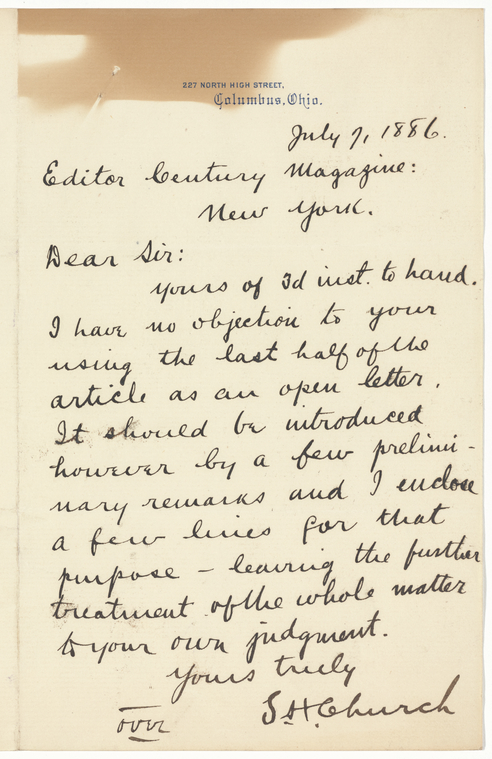 227 NORTH HIGH STREET,
Columbus, Ohio.
July 7, 1886.
Editor Century Magazine:
New York.
Dear Sir:
Yours of 3d inst. to hand.
I have no objection to your
using the last half of the
article as an open letter.
It should be introduced
however by a few prelimi-
nary remarks and I enclose
a few lines for that
purpose – leaving the further
treatment of the whole matter
to your own judgment.
Yours truly
S. H. Church
over